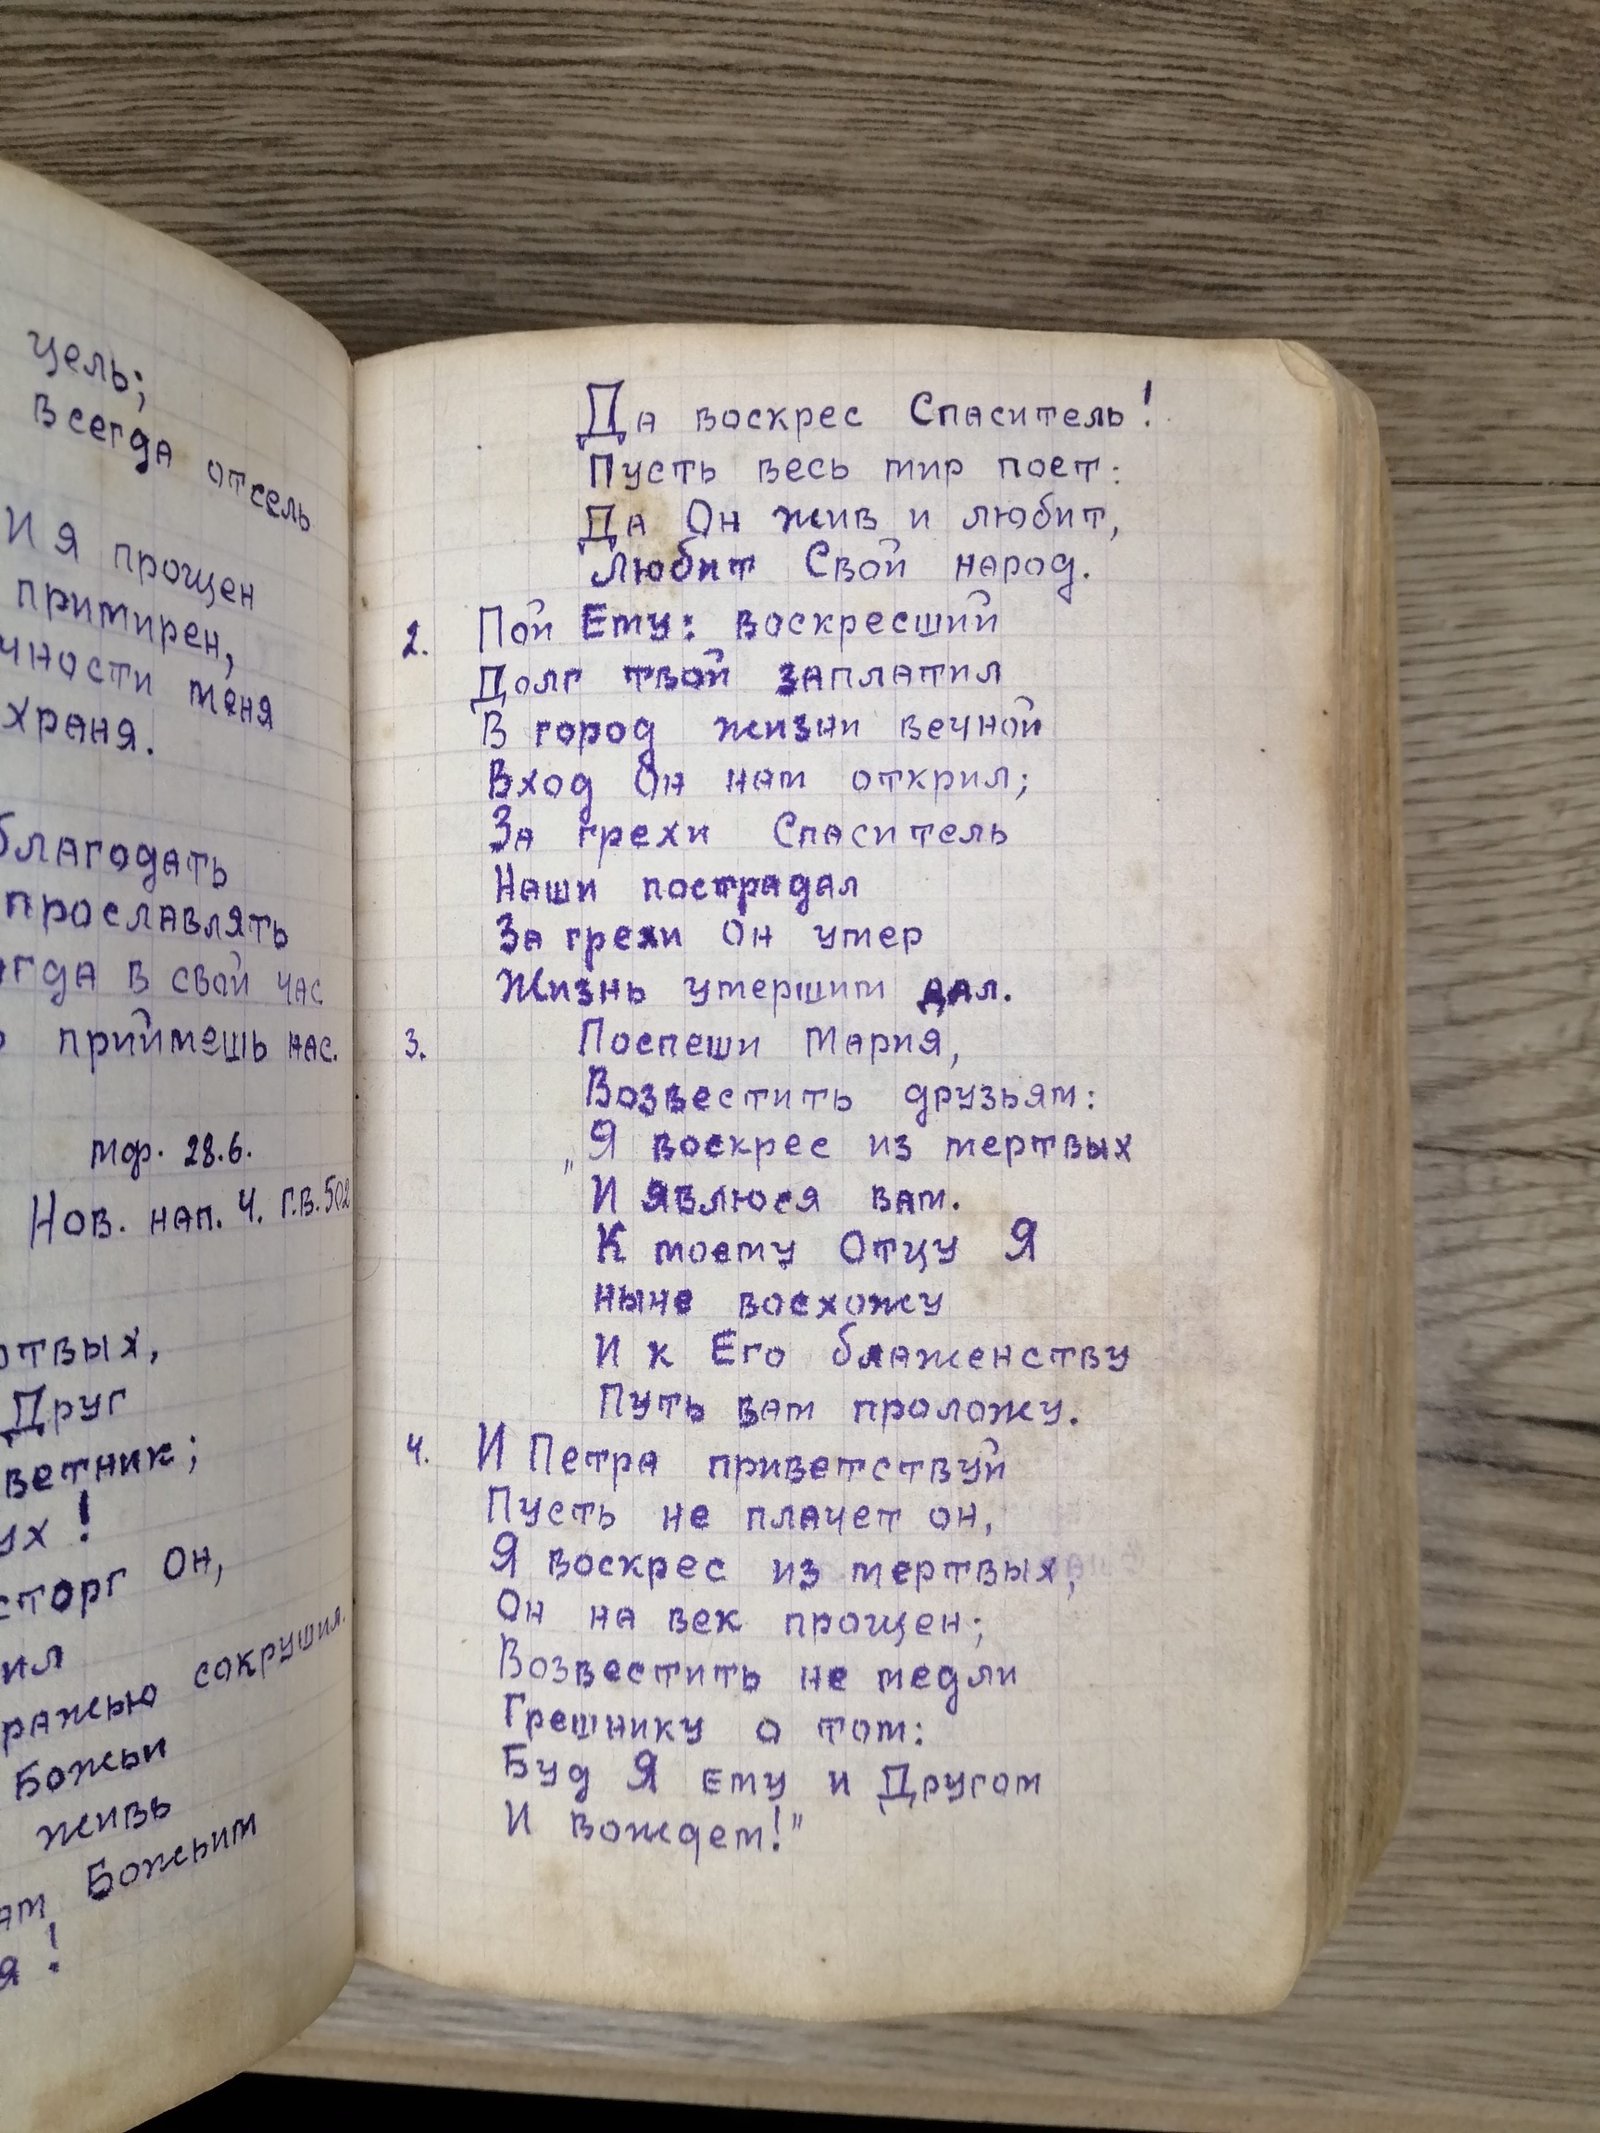 цель;
всегда отсель
И я прощен
примирен,
чности меня
храня.
благодать
прославлять
огда в свой час
приймешь нас.
мф. 28.6.
Нов. нап. Ч. Г.В. 502
ртвых,
Друг
ветник;
ух!
сторг Он,
ил
ражью сокрушил.
Божьи
живь
ам Божьим
я!
Да воскрес Спаситель!
Пусть весь мир поет:
Да Он жив и любит,
Любит Свой народ.
2. Пой Ему: воскресший
Долг твой заплатил
В город жизни вечной
Вход Он нам открил;
За грехи Спаситель
Наши пострадал
За грехи Он умер
Жизнь умершим дал.
3. Поспеши Мария,
Возвестить друзьям:
„Я воскрес из мертвых
И явлюся вам.
К моему Отцу Я
ныне восхожу
И к Его блаженству
Путь вам проложу.
4. И Петра приветствуй
Пусть не плачет он,
Я воскрес из мертвых,
Он на век прощен;
Возвестить не медли
Грешнику о том:
Буд Я ему и Другом
И вождем!"